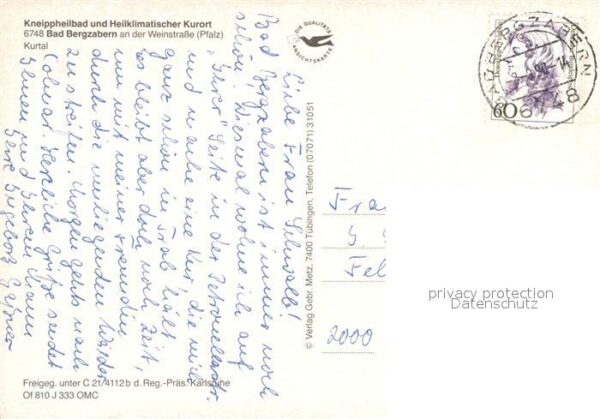 Kneippheilbad und Heilklimatischer Kurort
6748 Bad Bergzabern an der Weinstraße (Pfalz)
Kurtal
DIE QUALITÄTS
ANSICHTSKARTE
Liebe Frau Schwalb!
Bad Bergzabern ist immer noch
schön! Diesmal wohne ich auf
"Ihrer" Seite in der
und mache eine Kur, die mich
ganz schön in Trab hält.
Es bleibt aber doch noch Zeit,
um mit meiner Freundin
durch die umliegenden Wälder
zu streifen. Morgen gehts nach
Colmar. Herzliche Grüße sendet
Ihnen und Ihrem Mann
Ihre Ingeborg
© Verlag Gebr. Metz, 7400 Tübingen, Telefon (07071) 31051
BAD BERGZABERN
6748
60
Fra
Fel
2000
privacy protection
Datenschutz
Freigeg. unter C 21/4112 b d. Reg.-Präs. Karlsruhe
Of 810 J 333 OMC